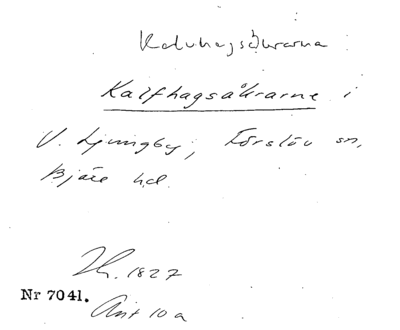 Kalvhagsåkrarna
Kalfhagsåkrarne i
V. Ljungby, Förslöv sn,
Bjäre hd.
Sk. 1827
Nr 7041.
Ant 10 a